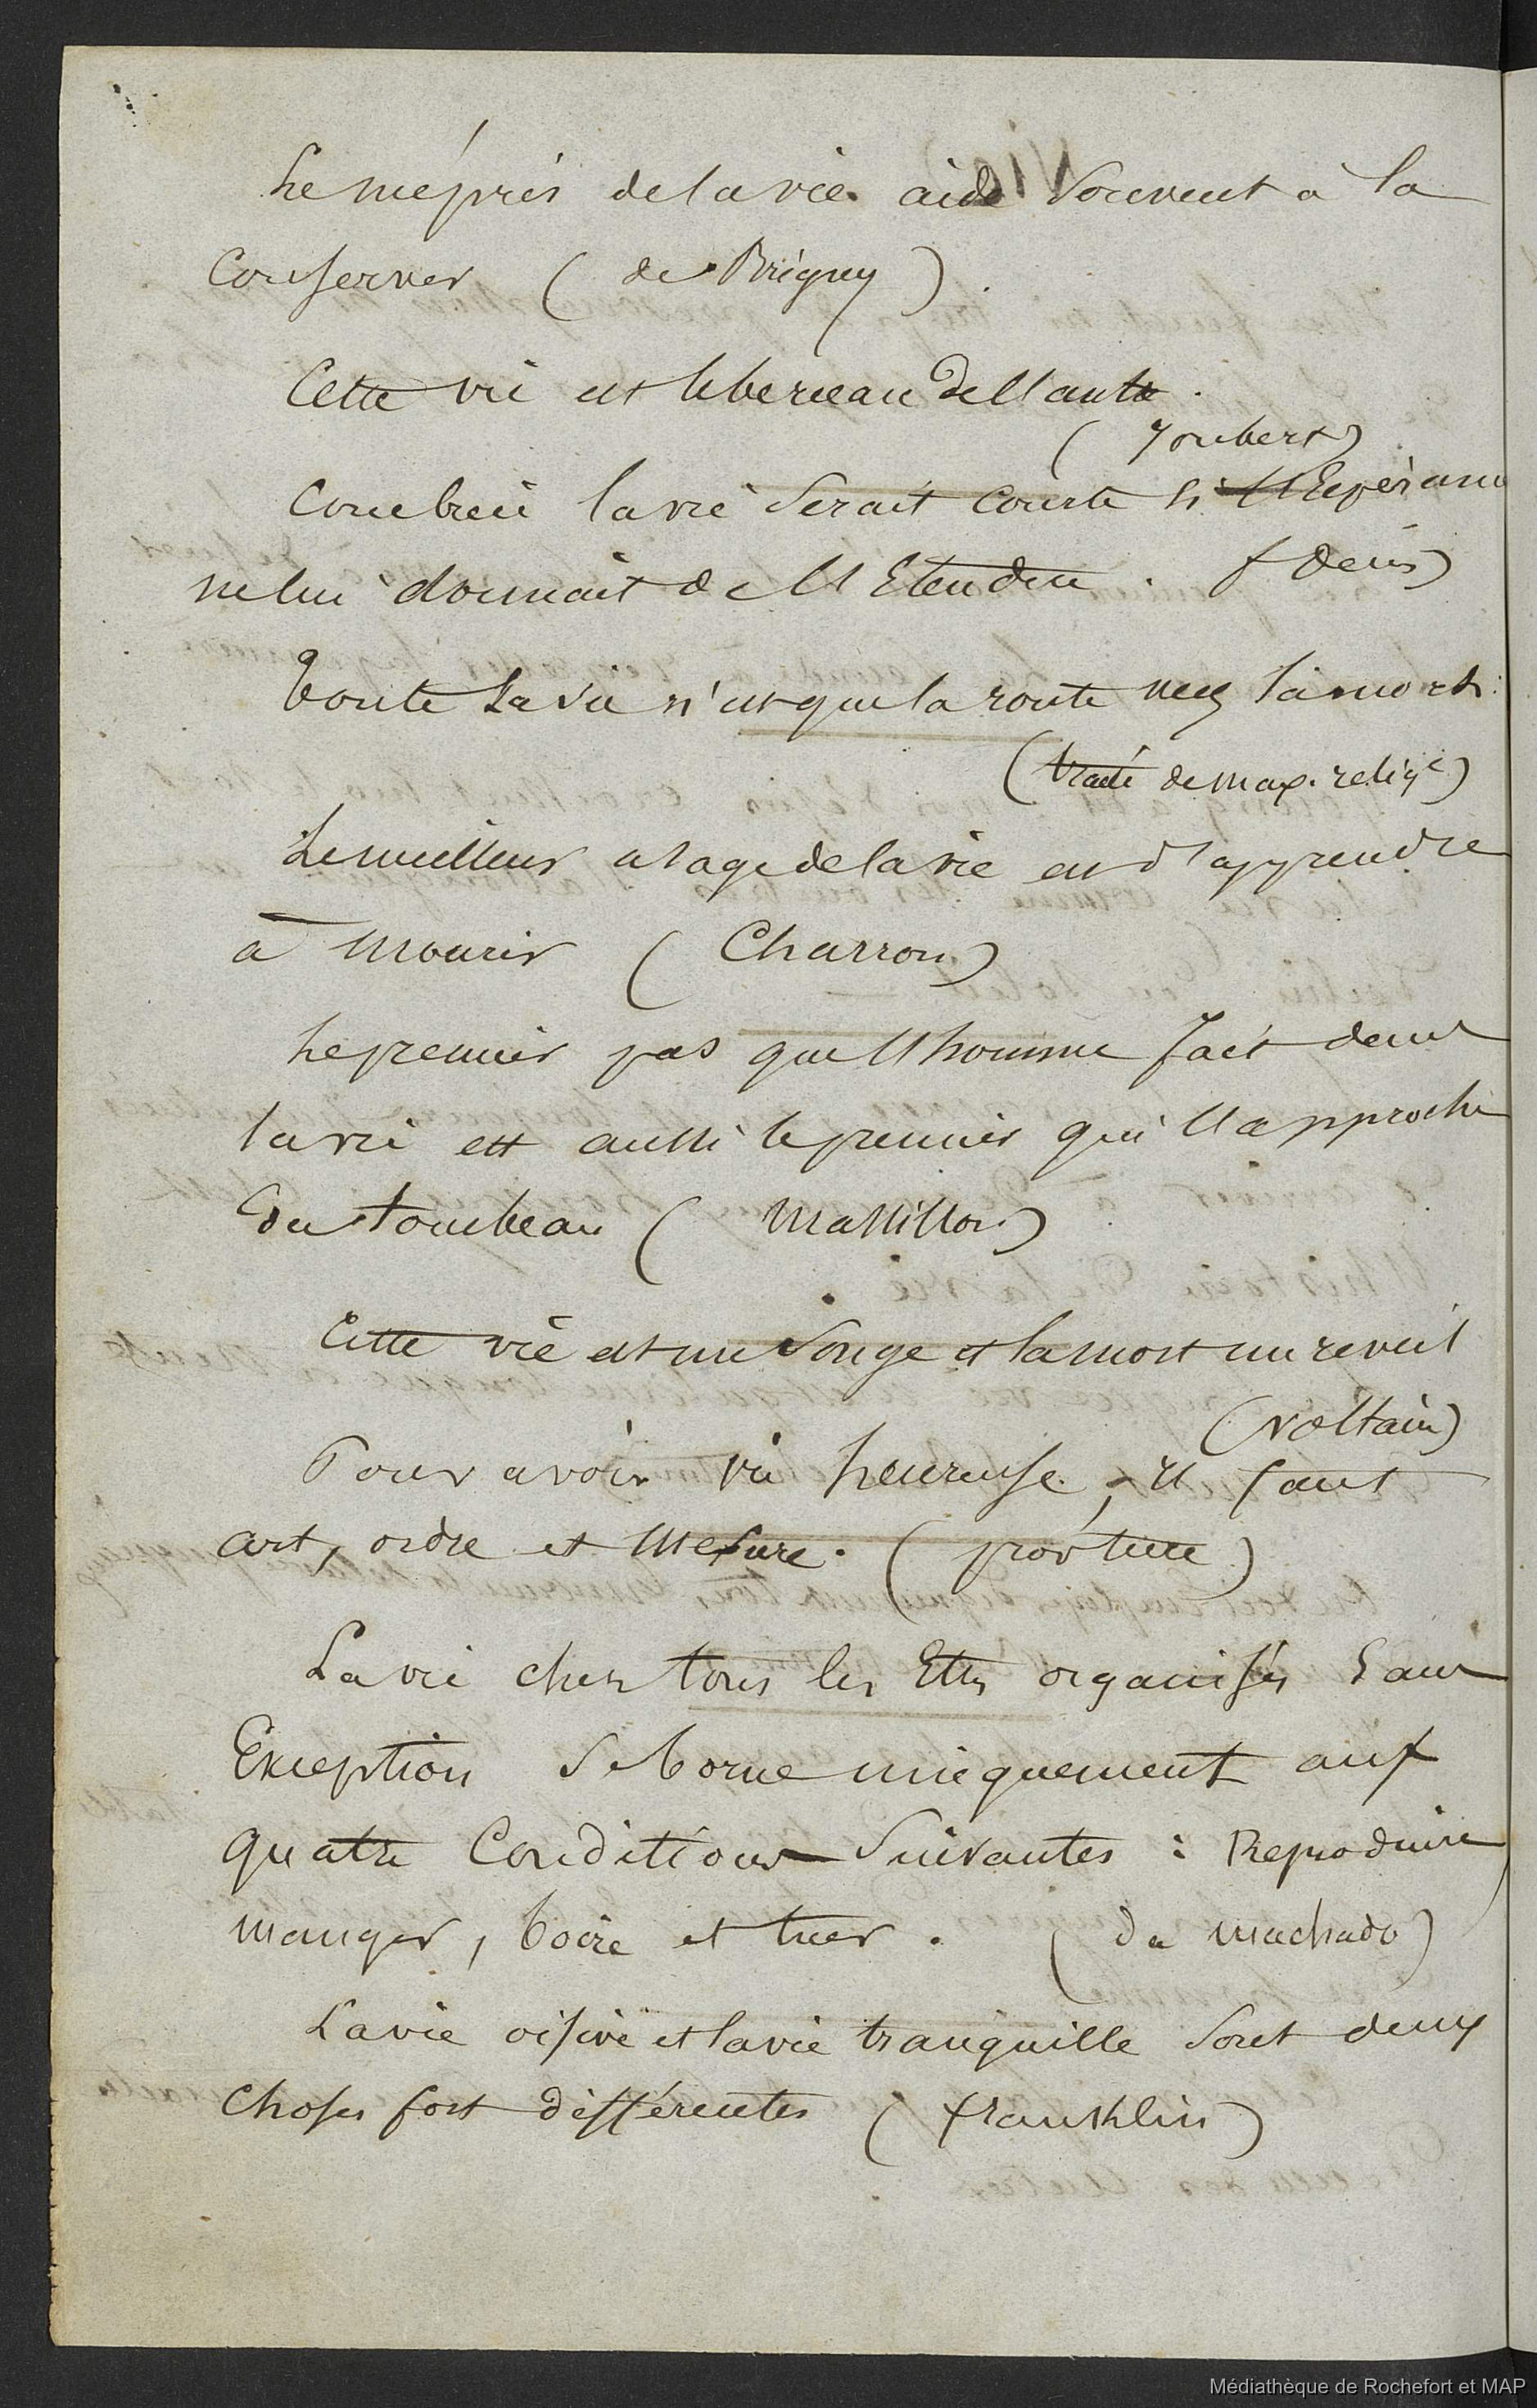 Le mépris de la vie aide souvent à la
conserver ( de Brégny ).
Cette vie est le berceau de l'autre.
( Joubert )
Combien la vie serait courte si l'Espérance
ne lui donnait de l'Etendue. ( Denis )
Toute la vie n'est que la route vers la mort.
( traité de max. relige )
Le meilleur usage de la vie est d'apprendre
à mourir ( Charron )
Le premier pas que l'homme fait dans
la vie est aussi le premier qui l'approche
du tombeau ( Massillon )
Cette vie est un songe et la mort un reveil
( Voltaire )
Pour avoir vie heureuse, il faut
art, ordre et mesure. ( prov )
La vie chez tous les Etres organisés sans
Exception se borne uniquement aux
quatre Conditions suivantes : Reproduire,
manger, boire et tuer. ( da Machado )
La vie oisive et la vie tranquille sont deux
choses fort différentes ( franklin )
Médiathèque de Rochefort et MAP